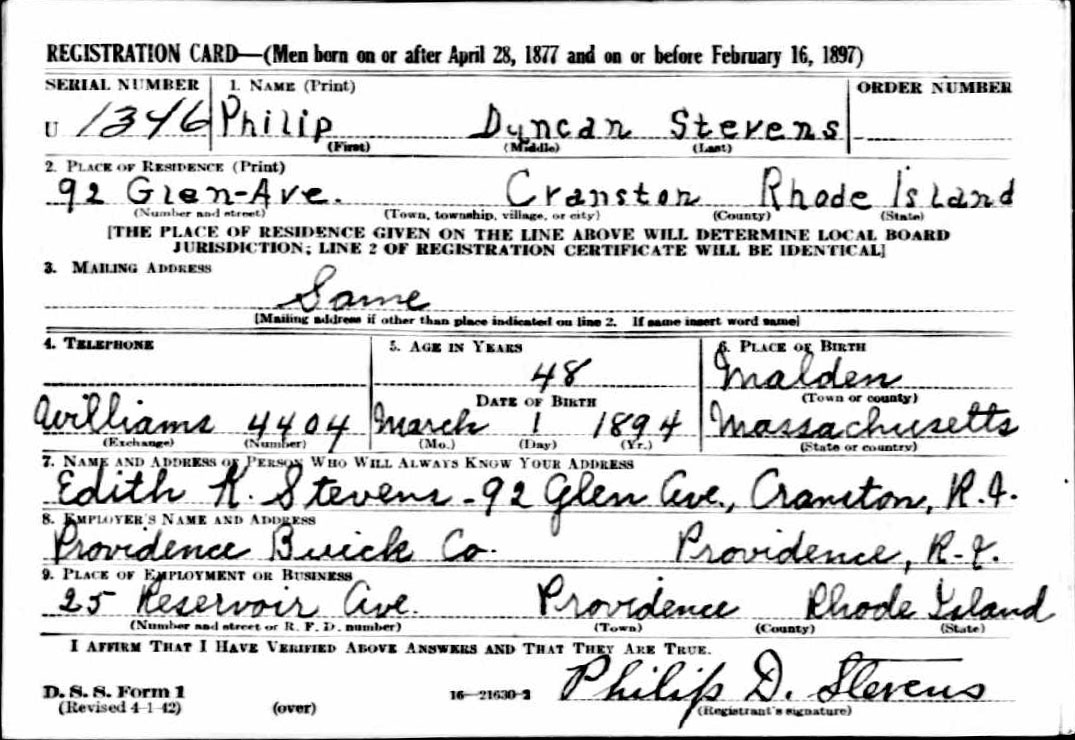 REGISTRATION CARD—(Men born on or after April 28, 1877 and on or before February 16, 1897)
SERIAL NUMBER 1. NAME (Print) ORDER NUMBER
U 1346 Philip Duncan Stevens
(First) (Middle) (Last)
2. PLACE OF RESIDENCE (Print)
92 Glen-Ave. Cranston Rhode Island
(Number and street) (Town, township, village, or city) (County) (State)
[THE PLACE OF RESIDENCE GIVEN ON THE LINE ABOVE WILL DETERMINE LOCAL BOARD
JURISDICTION; LINE 2 OF REGISTRATION CERTIFICATE WILL BE IDENTICAL]
3. MAILING ADDRESS
Same
[Mailing address if other than place indicated on line 2. If same insert word same]
4. TELEPHONE 5. AGE IN YEARS 6. PLACE OF BIRTH
48 Malden
DATE OF BIRTH (Town or county)
Williams 4404 March 1 1894 Massachusetts
(Exchange) (Number) (Mo.) (Day) (Yr.) (State or country)
7. NAME AND ADDRESS OF PERSON WHO WILL ALWAYS KNOW YOUR ADDRESS
Edith K. Stevens - 92 Glen Ave., Cranston, R.I.
8. EMPLOYER'S NAME AND ADDRESS
Providence Buick Co. Providence, R-I.
9. PLACE OF EMPLOYMENT OR BUSINESS
25 Reservoir Ave. Providence Rhode Island
(Number and street or R. F. D. number) (Town) (County) (State)
I AFFIRM THAT I HAVE VERIFIED ABOVE ANSWERS AND THAT THEY ARE TRUE.
Philip D. Stevens
D. S. S. Form 1 16—21630-2
(Revised 4-1-42) (over) (Registrant's signature)